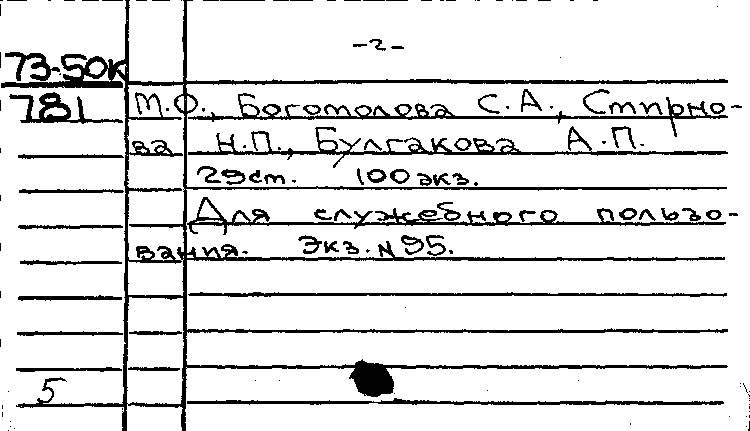 -2-
73-50к
781 М.О., Богомолова С.А., Смирно-
ва Н.П., Булгакова А.П.
29ст. 100 экз.
Для служебного пользо-
вания. Экз. № 95.
5